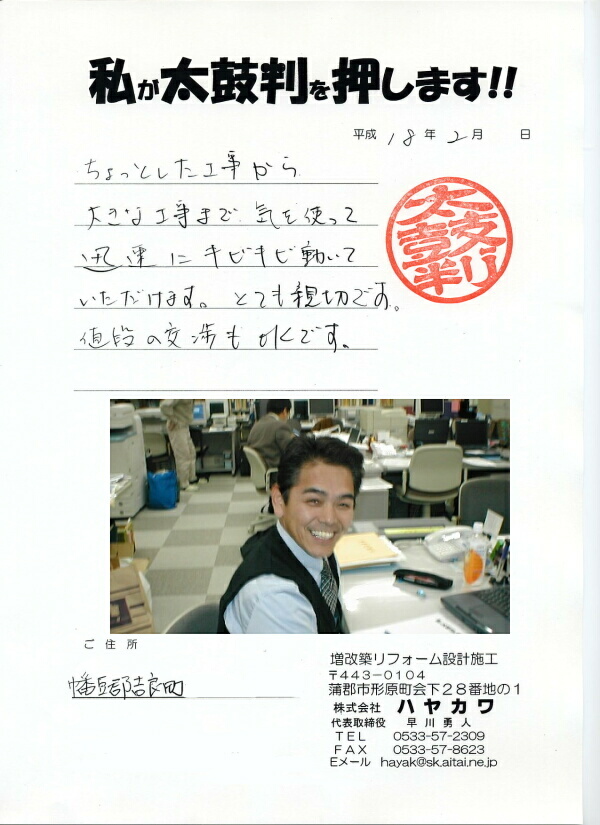 私が太鼓判を押します!!
平成 18 年 2 月 日
ちょっとした工事から
大きな工事まで 気を使って
迅速に キビキビ動いて
いただけます。とても親切です。
値段の交渉も OKです。
太鼓判
ご住所
幡豆郡吉良町
増改築リフォーム設計施工
〒443-0104
蒲郡市形原町会下28番地の1
株式会社 ハヤカワ
代表取締役 早川勇人
TEL 0533-57-2309
FAX 0533-57-8623
Eメール hayak@sk.aitai.ne.jp